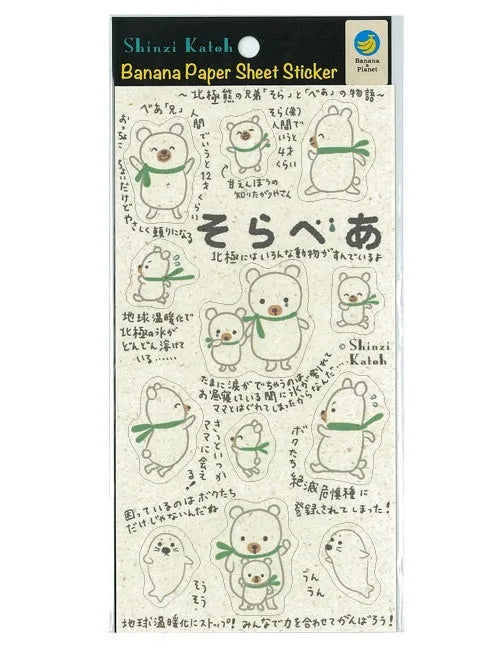 Shinzi Katoh
Banana Paper Sheet Sticker
Banana
Planet
～北極熊の兄弟「そら」と「べあ」の物語～
べあ「兄」
人間でいうと12才くらい
おっちょこちょいだけどやさしく頼りになる
そら(弟)
人間で
いうと
4才
くらい
甘えんぼうの
知りたがりやさん
そらべあ
北極にはいろんな動物がすんでいるよ
地球温暖化で
北極の氷が
どんどん溶けて
いる……
© Shinzi
Katoh
たまに涙がでちゃうのは、
お昼寝している間に氷が割れて
ママとはぐれてしまったからなんだ…
きっといつか
ママに会える!
ボクたち
絶滅危惧種に
登録されてしまった!
困っているのはボクたち
だけじゃないんだね
そう
そう
うん
うん
地球温暖化にストップ! みんなで力を合わせてがんばろう!